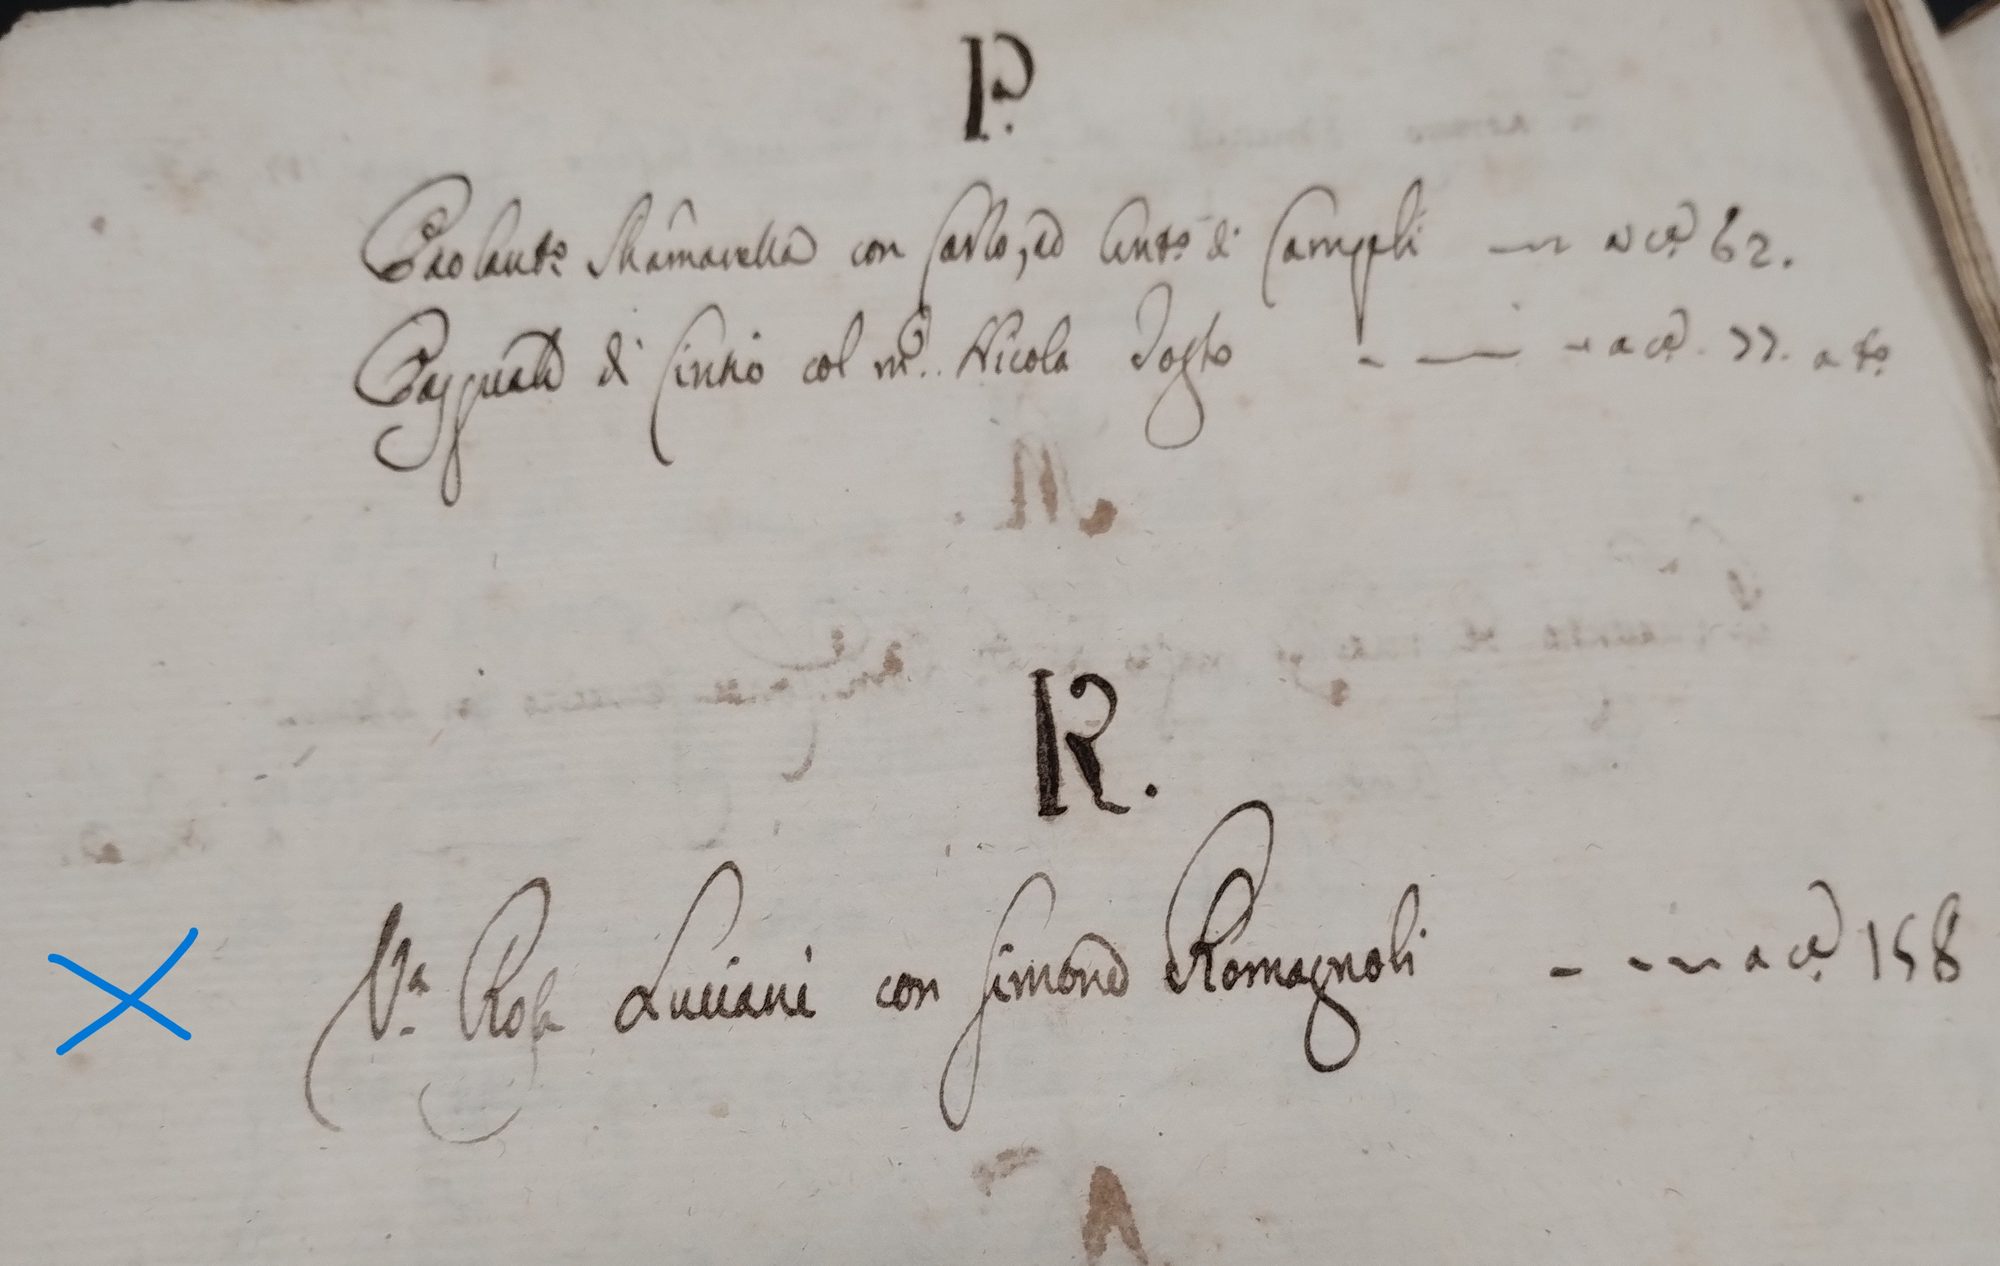 P.
Paolant.º con Carlo, ed Ant.º di Campli a c.ª 62.
Pasquale di Cintio col m.º Nicola a c.ª 77. a t.º
R.
V.ª Rosa Luciani con Simone Romagnoli a c.ª 158